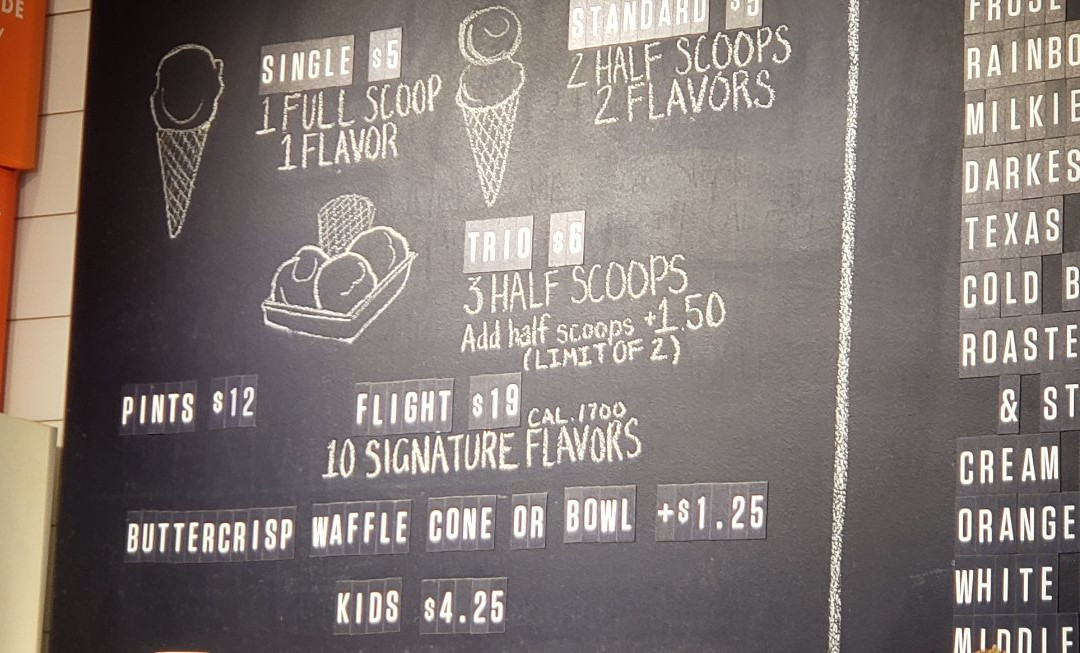 DE
SINGLE $5
1 FULL SCOOP
1 FLAVOR
STANDARD $5
2 HALF SCOOPS
2 FLAVORS
TRIO $6
3 HALF SCOOPS
Add half scoops +1.50
(LIMIT OF 2)
PINTS $12
FLIGHT $19
CAL. 1700
10 SIGNATURE FLAVORS
BUTTERCRISP WAFFLE CONE OR BOWL +$1.25
KIDS $4.25
FROSE
RAINBO
MILKIE
DARKES
TEXAS
COLD B
ROASTE
& ST
CREAM
ORANGE
WHITE
MIDDLE